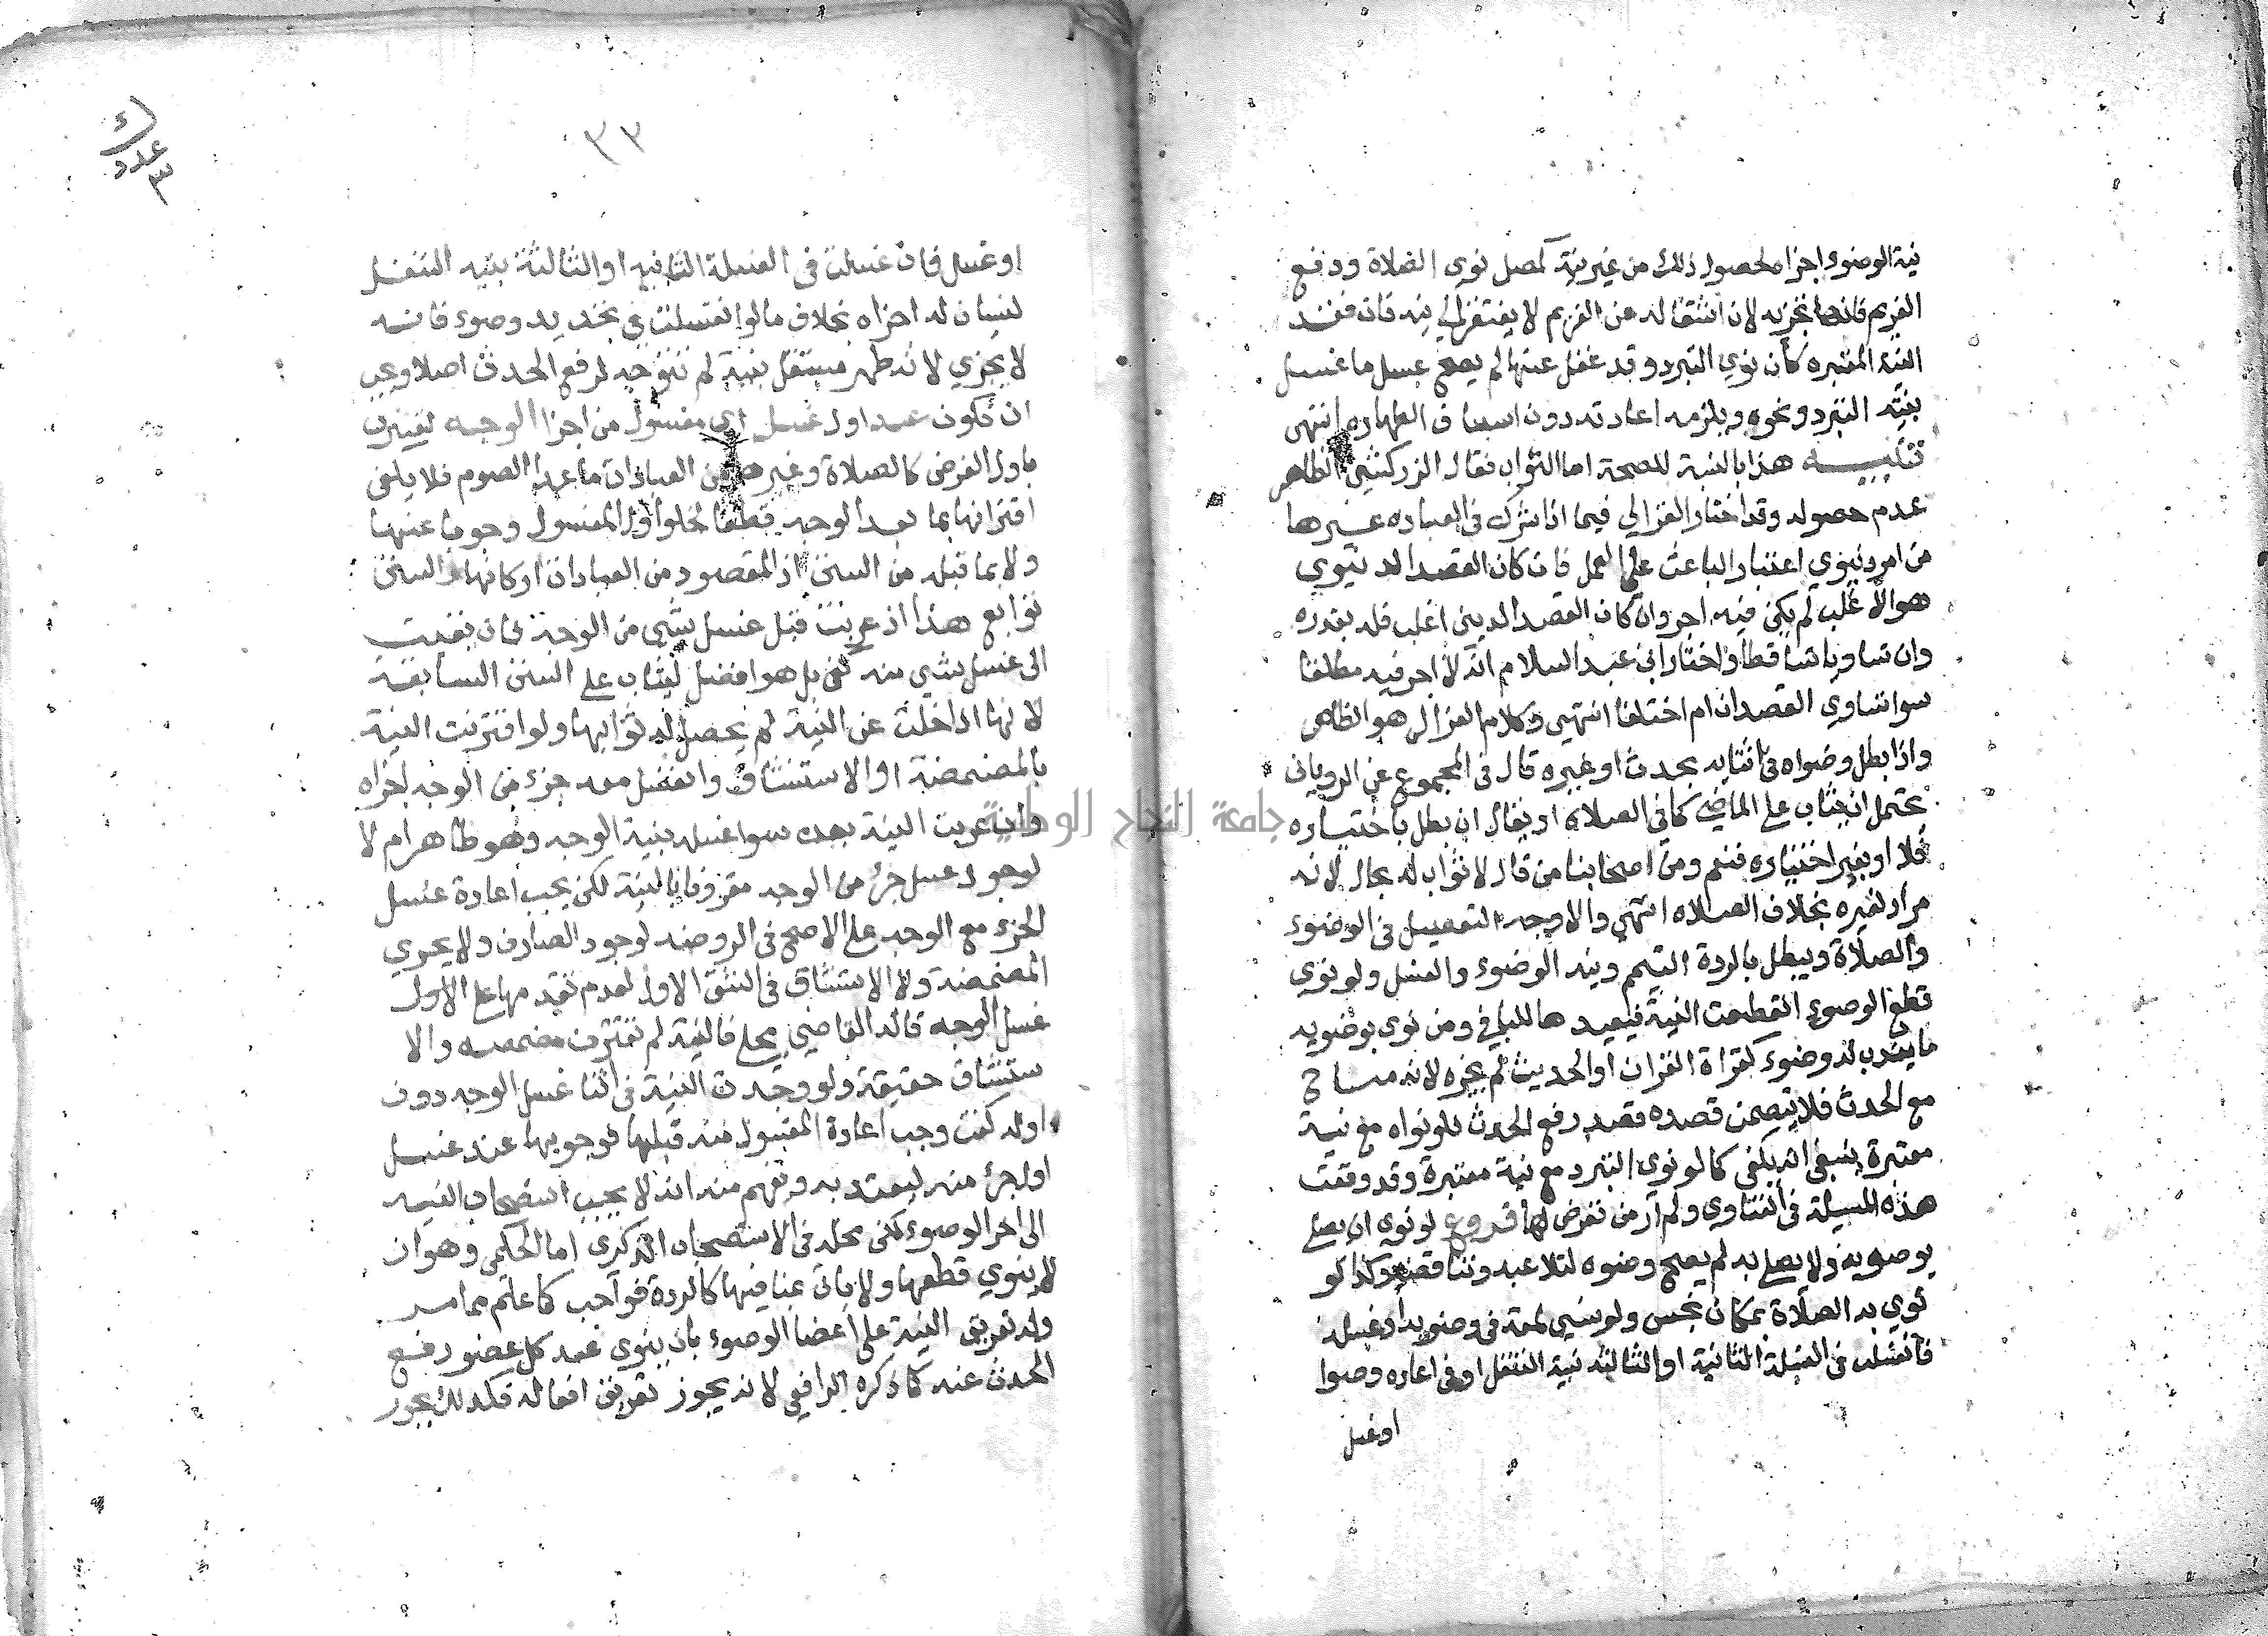 نية الوضوء اجزاه لحصول ذلك من غير نية كمصل نوى الصلاة ودفع
الغريم فانها تجزيه لان اشتغاله عن الغريم لا يفتقر الى نيه فان فقد
النية المعتبره كأن نوي التبرد وقد غفل عنها لم يصح غسل ما غسل
بنية التبرد ونحوه ويلزمه اعادته دون استيناف الطهاره انتهى
تنبيه هذا بالنسبة للصحة اما الثواب فقال الزركشي الظاهر
عدم حصوله وقد اختار الغزالي فيما اذا شرك في العباده غيرها
من امر دنيوي اعتبار الباعث علي العمل فان كان القصد الدنيوي
هو الاغلب لم يكن فيه اجر وان كان القصد الديني اغلب فله بقدره
وان تساويا تساقطا واختار ابن عبد السلام انه لا اجر فيه مطلقا
سوا تساوي القصدان ام اختلفا انتهي وكلام الغزالي هو الظاهر
واذا بطل وضواه في اثنايه بحدث او غيره قال في المجموع عن الروياني
يحتمل ان يثاب على الماضي كما في الصلاه او يقال ان بطل باختياره
فلا او بغير اختياره فنعم ومن اصحابنا من قال لا ثواب له بحال لانه
مراد لغيره بخلاف الصلاه انتهي والاوجه التفصيل في الوضوء
والصلاة ويبطل بالردة التيمم ونيه الوضوء والغسل ولو نوي
قطع الوضوء انقطعت النية فيعيدها للباقي ومن نوى بوضويه
ما يندب له وضوء كقراة القران او الحديث لم يجزه لانه مباح
مع الحدث فلا يتضمن قصده قصد رفع الحدث فلو نواه مع نية
معتبرة ينبغي انه يكفي كما لو نوي التبرد مع نية معتبرة وقد وقعت
هذه المسيلة في الفتاوي ولم ار من تعرض لها فروع لو نوي ان يصلي
بوضويه ولا يصلي به لم يصح وضوه لتلاعبه وتناقضه وكذا لو
نوي به الصلاة بمكان نجس ولو نسي لمعة في وضويه او غسله
فانغسلت في الغسلة الثانية او الثالثه بنية التنفل او في اعاده وضوا
او غسل
٣٣
عدد
٣
او غسل فان غسلت في الغسلة الثانيه او الثالثة بنيه التنفل
لنسيان له اجزاه بخلاف ما لو انغسلت في تجديد وضوء فانه
لا يجزي لانه طهر مستقل بنية لم تتوجه لرفع الحدث اصلا ويجب
ان تكون عند اول غسل اي مغسول من اجزا الوجه لتقترن
باول الفرض كالصلاة وغيرها من العبادات ما عدا الصوم فلا يكفي
اقترانها بما بعد الوجه قطعا لخلو اول المغسول وجوبا عنها
ولا بما قبله من السنن اذ المقصود من العبادات اركانها والسنن
توابع هذا ان عزبت قبل غسل شي من الوجه فان بقيت
الى غسل شي منه كفى بل هو افضل ليثاب على السنن السابقة
لانها اذا خلت عن النية لم يحصل له ثوابها ولو اقترنت النية
بالمضمضة او الاستنشاق وانغسل معه جزء من الوجه اجزاه
وان عزبت النية بعده سوا غسله بنية الوجه وهو ظاهر ام لا
لوجود غسل جزء من الوجه مقرونا بالنية لكن يجب اعادة غسل
الجزء مع الوجه على الاصح في الروضه لوجود الصارف ولا يجزي
المضمضة ولا الاستنشاق في الشق الاول لعدم تقدمهما على الاول
غسل الوجه قاله القاضي مجلي فالنية لم تقترن بمضمضه ولا
ستنشاق حقيقة ولو وجدت النية في اثنا غسل الوجه دون
اوله كفت وجب اعادة المغسول منه قبلها لوجوبها عند غسل
اول جزء منه ليعتد به ويفهم منه انه لا يجب استصحاب النيه
الى اخر الوضوء لكن محله في الاستصحاب الذكري اما الحكمي وهو ان
لا ينوي قطعها ولا ياتي بمنافيها كالردة فواجب كما علم مما مر
وله تفريق النية على اعضا الوضوء بان ينوي عند كل عضو رفع
الحدث عنه كما ذكره الرافعي لانه يجوز تفريق افعاله فكذلك يجوز
جامعة النجاح الوطنية